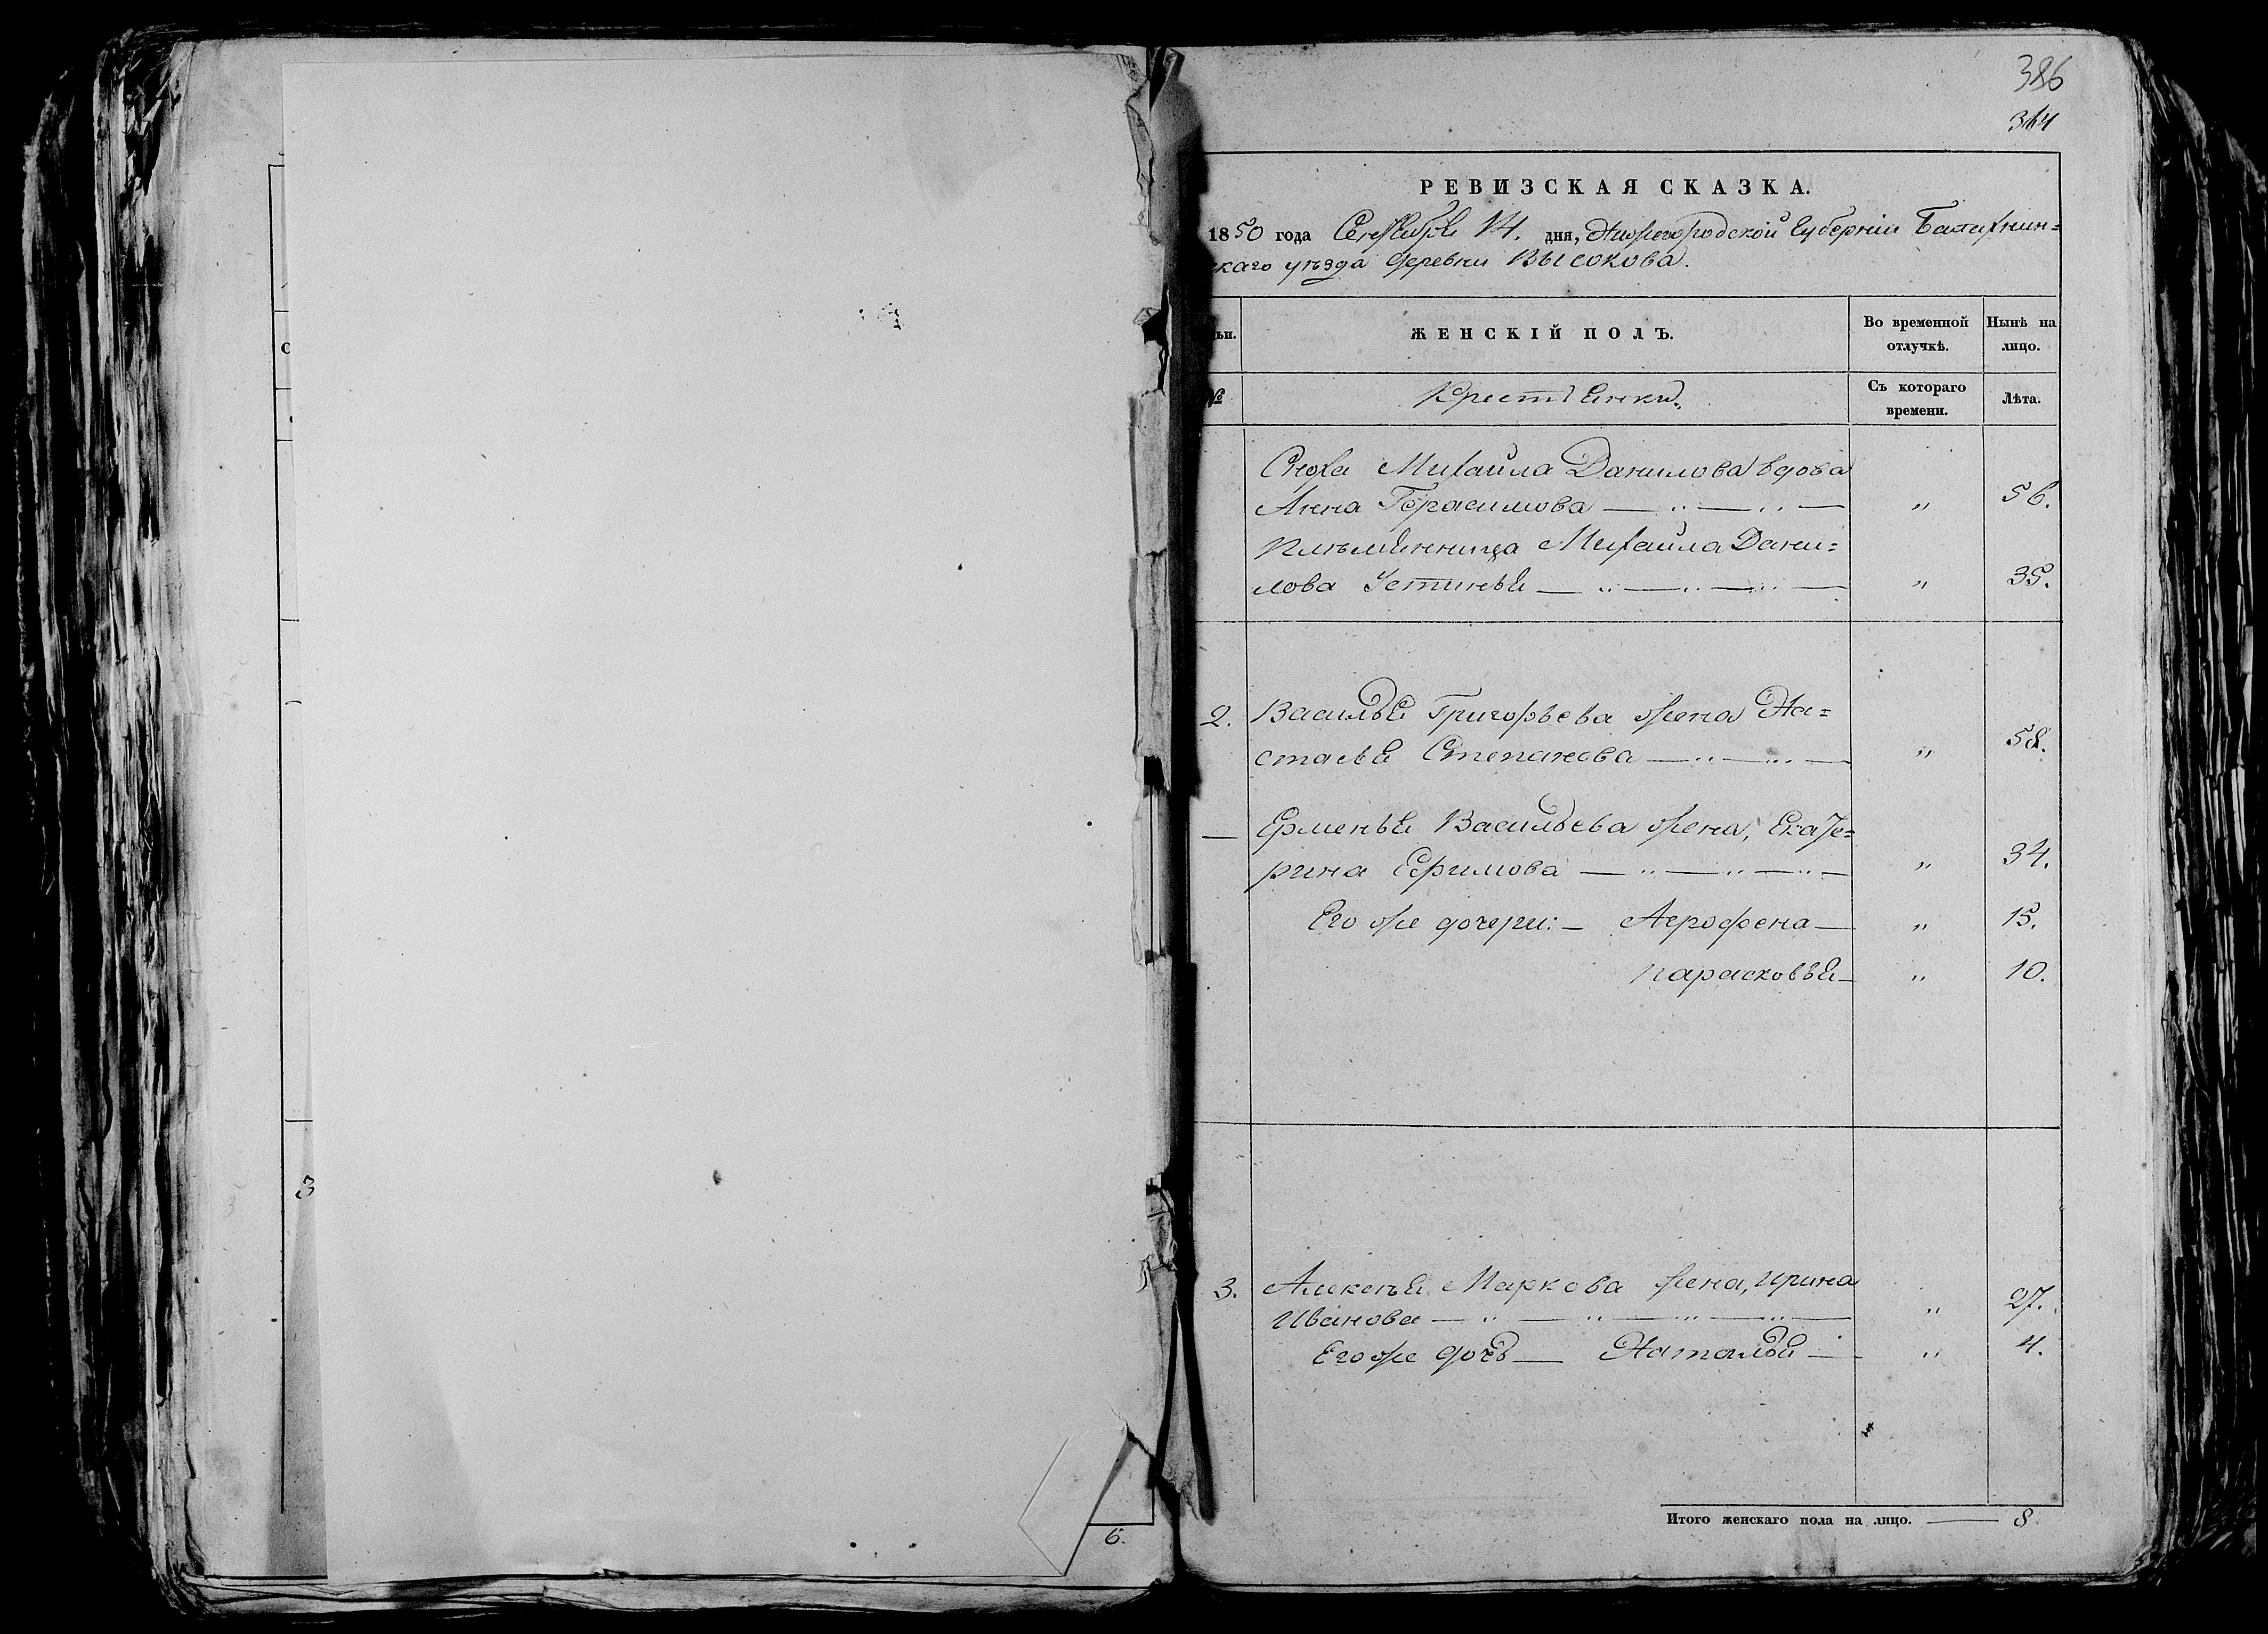 с
3
6.
386
314
РЕВИЗСКАЯ СКАЗКА.
1850 года Сентября 14. дня, Нижегородской Губерніи Балахнин=
скаго уѣзда деревни Высокова.
ЖЕНСКІЙ ПОЛЪ.
Во временной отлучкѣ.
Нынѣ на лицо.
№
Крестьянки.
Съ котораго времени.
Лѣта.
Сноха Михайла Данилова вдова
Анна Герасимова — „ — „ — „ 56.
Племянница Михайла Дани=
лова Устинья — „ — „ — „ — „ 35.
2. Василья Григорьева жена На=
стасья Степанова — „ — „ — „ 58.
— Ерменья Васильева жена, Екате=
рина Ефимова — „ — „ — „ — „ 34.
Его же дочери: — Агрофена — „ 15.
Парасковья — „ 10.
3. Алексѣя Маркова жена, Ирина
Иванова — „ — „ — „ — „ — „ 27.
Его же дочь — Наталья — „ 4.
Итого женскаго пола на лицо. — 8